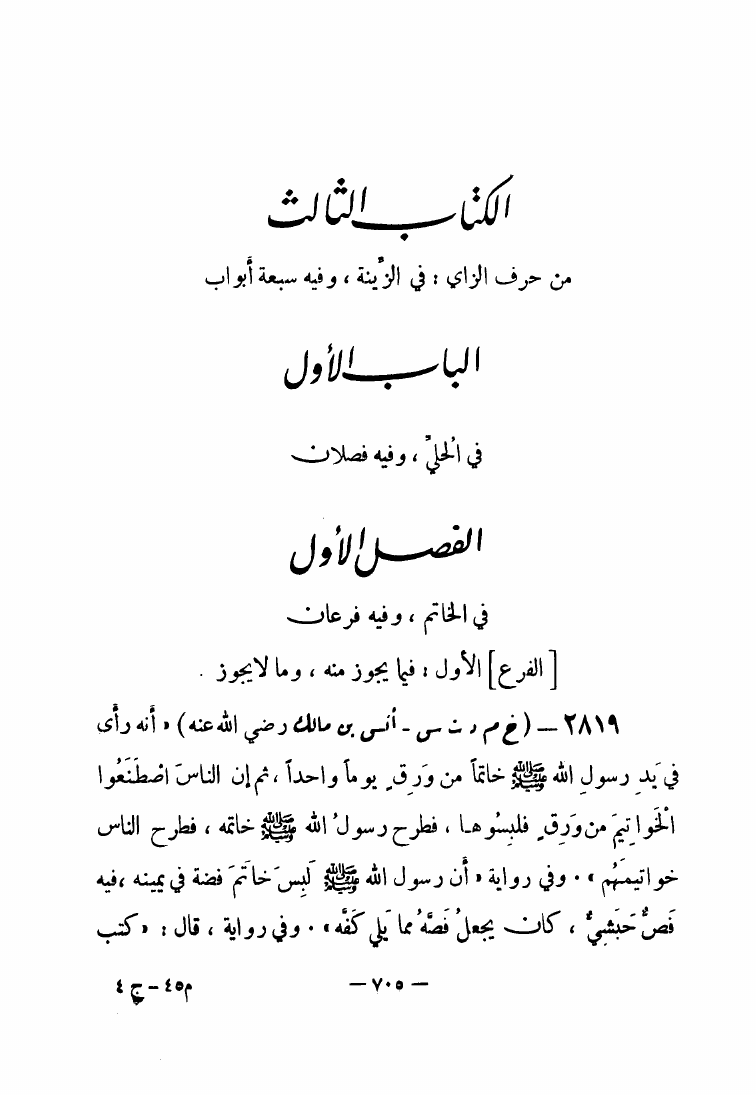 الكتاب الثالث
من حرف الزاي : في الزِّينة ، وفيه سبعة أبواب
الباب الأول
في الُحليِّ ، وفيه فصلان
الفصل الأول
في الخاتم ، وفيه فرعان
[ الفرع ] الأول : فيما يجوز منه ، وما لا يجوز .
٢٨١٩ — ( خ م د ت س - أنس بن مالك رضي الله عنه ) « أنه رأى
في يَدِ رسولِ الله ﷺ خاتماً من وَرِقٍ يوماً واحداً ، ثم إن الناسَ اصْطَنَعُوا
الْخَواتِيمَ من وَرِقٍ فلبِسُوها ، فطرح رسولُ الله ﷺ خاتمه ، فطرح الناس
خواتيمَهُم » . وفي رواية « أن رسول الله ﷺ لَبِسَ خاتَمَ فضة في يمينه ، فيه
فَصٌّ حَبَشيٌّ ، كان يجعلُ فَصَّهُ مما يَلي كَفَّه » . وفي رواية ، قال : « كتب
— ٧٠٥ —
م٤٥ - ج ٤